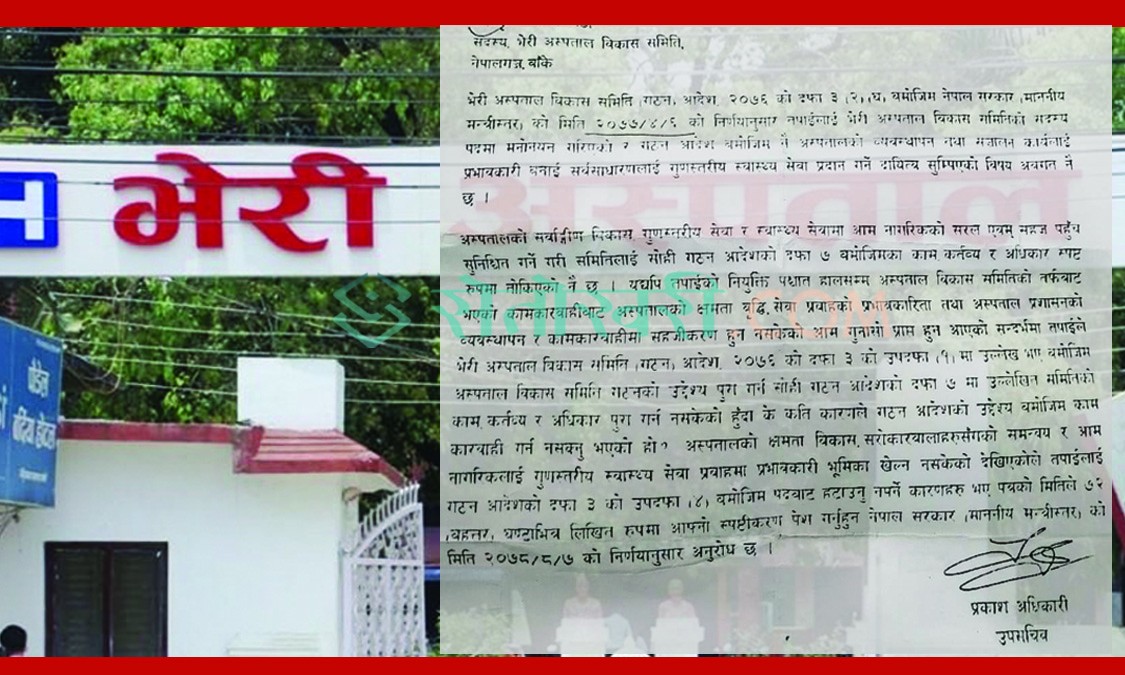 सदस्य, भेरी अस्पताल विकास समिति,
नेपालगन्ज, बाँके
भेरी अस्पताल विकास समिति (गठन) आदेश, २०७६ को दफा ३ (२) (घ) बमोजिम नेपाल सरकार (माननीय
मन्त्रीस्तर) को मिति २०७७/४/६ को निर्णयानुसार तपाईंलाई भेरी अस्पताल विकास समितिको सदस्य
पदमा मनोनयन गरिएको र गठन आदेश बमोजिम नै अस्पतालको व्यवस्थापन तथा सञ्चालन कार्यलाई
प्रभावकारी बनाई सर्वसाधारणलाई गुणस्तरीय स्वास्थ्य सेवा प्रदान गर्ने दायित्व सुम्पिएको विषय अवगत नै
छ ।
अस्पतालको सर्वाङ्गीण विकास, गुणस्तरीय सेवा र स्वास्थ्य सेवामा आम नागरिकको सरल एवम् सहज पहुँच
सुनिश्चित गर्ने गरी समितिलाई सोही गठन आदेशको दफा ७ बमोजिमका काम, कर्तव्य र अधिकार स्पष्ट
रुपमा तोकिएको नै छ । यद्यपि तपाईंको नियुक्ति पश्चात हालसम्म अस्पताल विकास समितिको तर्फबाट
भएको कामकारवाहीबाट अस्पतालको क्षमता बृद्धि, सेवा प्रवाहको प्रभावकारिता तथा अस्पताल प्रशासनको
व्यवस्थापन र कामकारवाहीमा सहजीकरण हुन नसकेको आम गुनासो प्राप्त हुन आएको सन्दर्भमा तपाईंले
भेरी अस्पताल विकास समिति (गठन) आदेश, २०७६ को दफा ३ को उपदफा (१) मा उल्लेख भए बमोजिम
अस्पताल विकास समिति गठनको उद्देश्य पुरा गर्न सोही गठन आदेशको दफा ७ मा उल्लेखित समितिको
काम, कर्तव्य र अधिकार पुरा गर्न नसकेको हुँदा के कति कारणले गठन आदेशको उद्देश्य बमोजिम काम
कारवाही गर्न नसक्नु भएको हो? अस्पतालको क्षमता विकास, सरोकारवालाहरुसँगको समन्वय र आम
नागरिकलाई गुणस्तरीय स्वास्थ्य सेवा प्रवाहमा प्रभावकारी भूमिका खेल्न नसकेको देखिएकोले तपाईंलाई
गठन आदेशको दफा ३ को उपदफा (४) बमोजिम पदबाट हटाउनु नपर्ने कारणहरु भए पत्रको मितिले ७२
(बहत्तर) घण्टाभित्र लिखित रुपमा आफ्नो स्पष्टीकरण पेश गर्नुहुन नेपाल सरकार (माननीय मन्त्रीस्तर) को
मिति २०७८/८/७ को निर्णयानुसार अनुरोध छ ।
प्रकाश अधिकारी
उपसचिव
H भेरी अस्पताल
सेतोखरी.COM
पौडेल